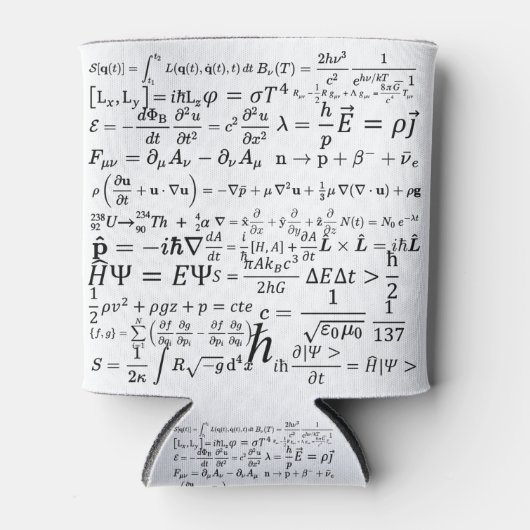 S[q(t)] = ∫_{t₁}^{t₂} L(q(t), q̇(t), t) dt B_ν(T) = 2hν³/c² 1/(e^{hν/kT} − 1)
[L_x, L_y] = iħL_z φ = σT⁴ R_{μν} − 1/2 R g_{μν} + Λ g_{μν} = 8πG/c⁴ T_{μν}
ℰ = − dΦ_B/dt ∂²u/∂t² = c² ∂²u/∂x² λ = h/p E⃗ = ρj⃗
F_{μν} = ∂_μ A_ν − ∂_ν A_μ n → p + β⁻ + ν̄_e
ρ(∂u/∂t + u · ∇u) = −∇p̄ + μ∇²u + 1/3 μ∇(∇ · u) + ρg
²³⁸₉₂U→²³⁴₉₀Th + ⁴₂α ∇ = x̂ ∂/∂x + ŷ ∂/∂y + ẑ ∂/∂z N(t) = N₀ e^{−λt}
p̂ = −iħ∇ dA/dt = i/ħ [H, A] + ∂A/∂t L̂ × L̂ = iħL̂
ĤΨ = EΨ S = πAk_Bc³/2hG ΔEΔt > ħ/2
1/2 ρv² + ρgz + p = cte c = 1/√(ε₀μ₀) 1/137
{f, g} = ∑_{i=1}^{N} (∂f/∂q_i ∂g/∂p_i − ∂f/∂p_i ∂g/∂q_i) ħ
S = 1/2κ ∫ R√−g d⁴x iħ ∂|Ψ>/∂t = Ĥ|Ψ>
S[q(t)] = ∫ L(q(t), q̇(t), t) dt B_ν(T) = 2hν³/c² 1/(e^{hν/kT} − 1)
[L_x, L_y] = iħL_z φ = σT⁴
ℰ = − dΦ_B/dt ∂²u/∂t² = c² ∂²u/∂x² λ = h/p E⃗ = ρj⃗
F_{μν} = ∂_μ A_ν − ∂_ν A_μ n → p + β⁻ + ν̄_e